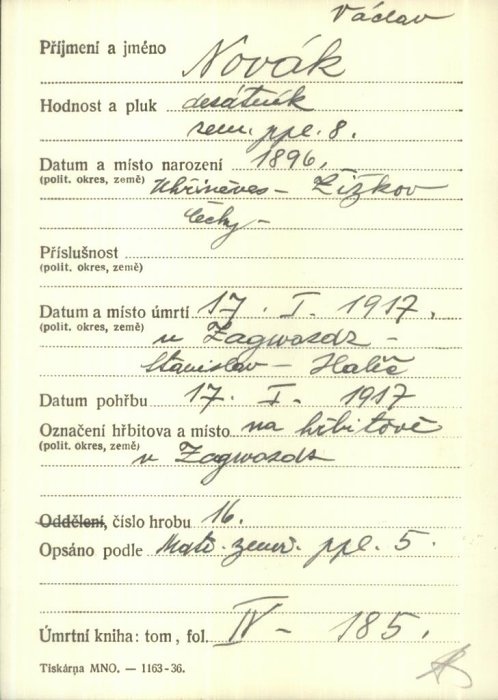 Václav
Příjmení a jméno Novák
Hodnost a pluk desátník
zem. ppl. 8.
Datum a místo narození 1896.
(polit. okres, země) Uhříněves – Žižkov
Čechy –
Příslušnost
(polit. okres, země)
Datum a místo úmrtí 17. I. 1917.
(polit. okres, země) u Zagwozdz –
Stanislav – Halič
Datum pohřbu 17. I. 1917
Označení hřbitova a místo na hřbitově
(polit. okres, země) v Zagwozdz
Oddělení, číslo hrobu 16.
Opsáno podle Matr. zemř. ppl. 5.
Úmrtní kniha: tom, fol. IV – 185.
Tiskárna MNO. — 1163-36.